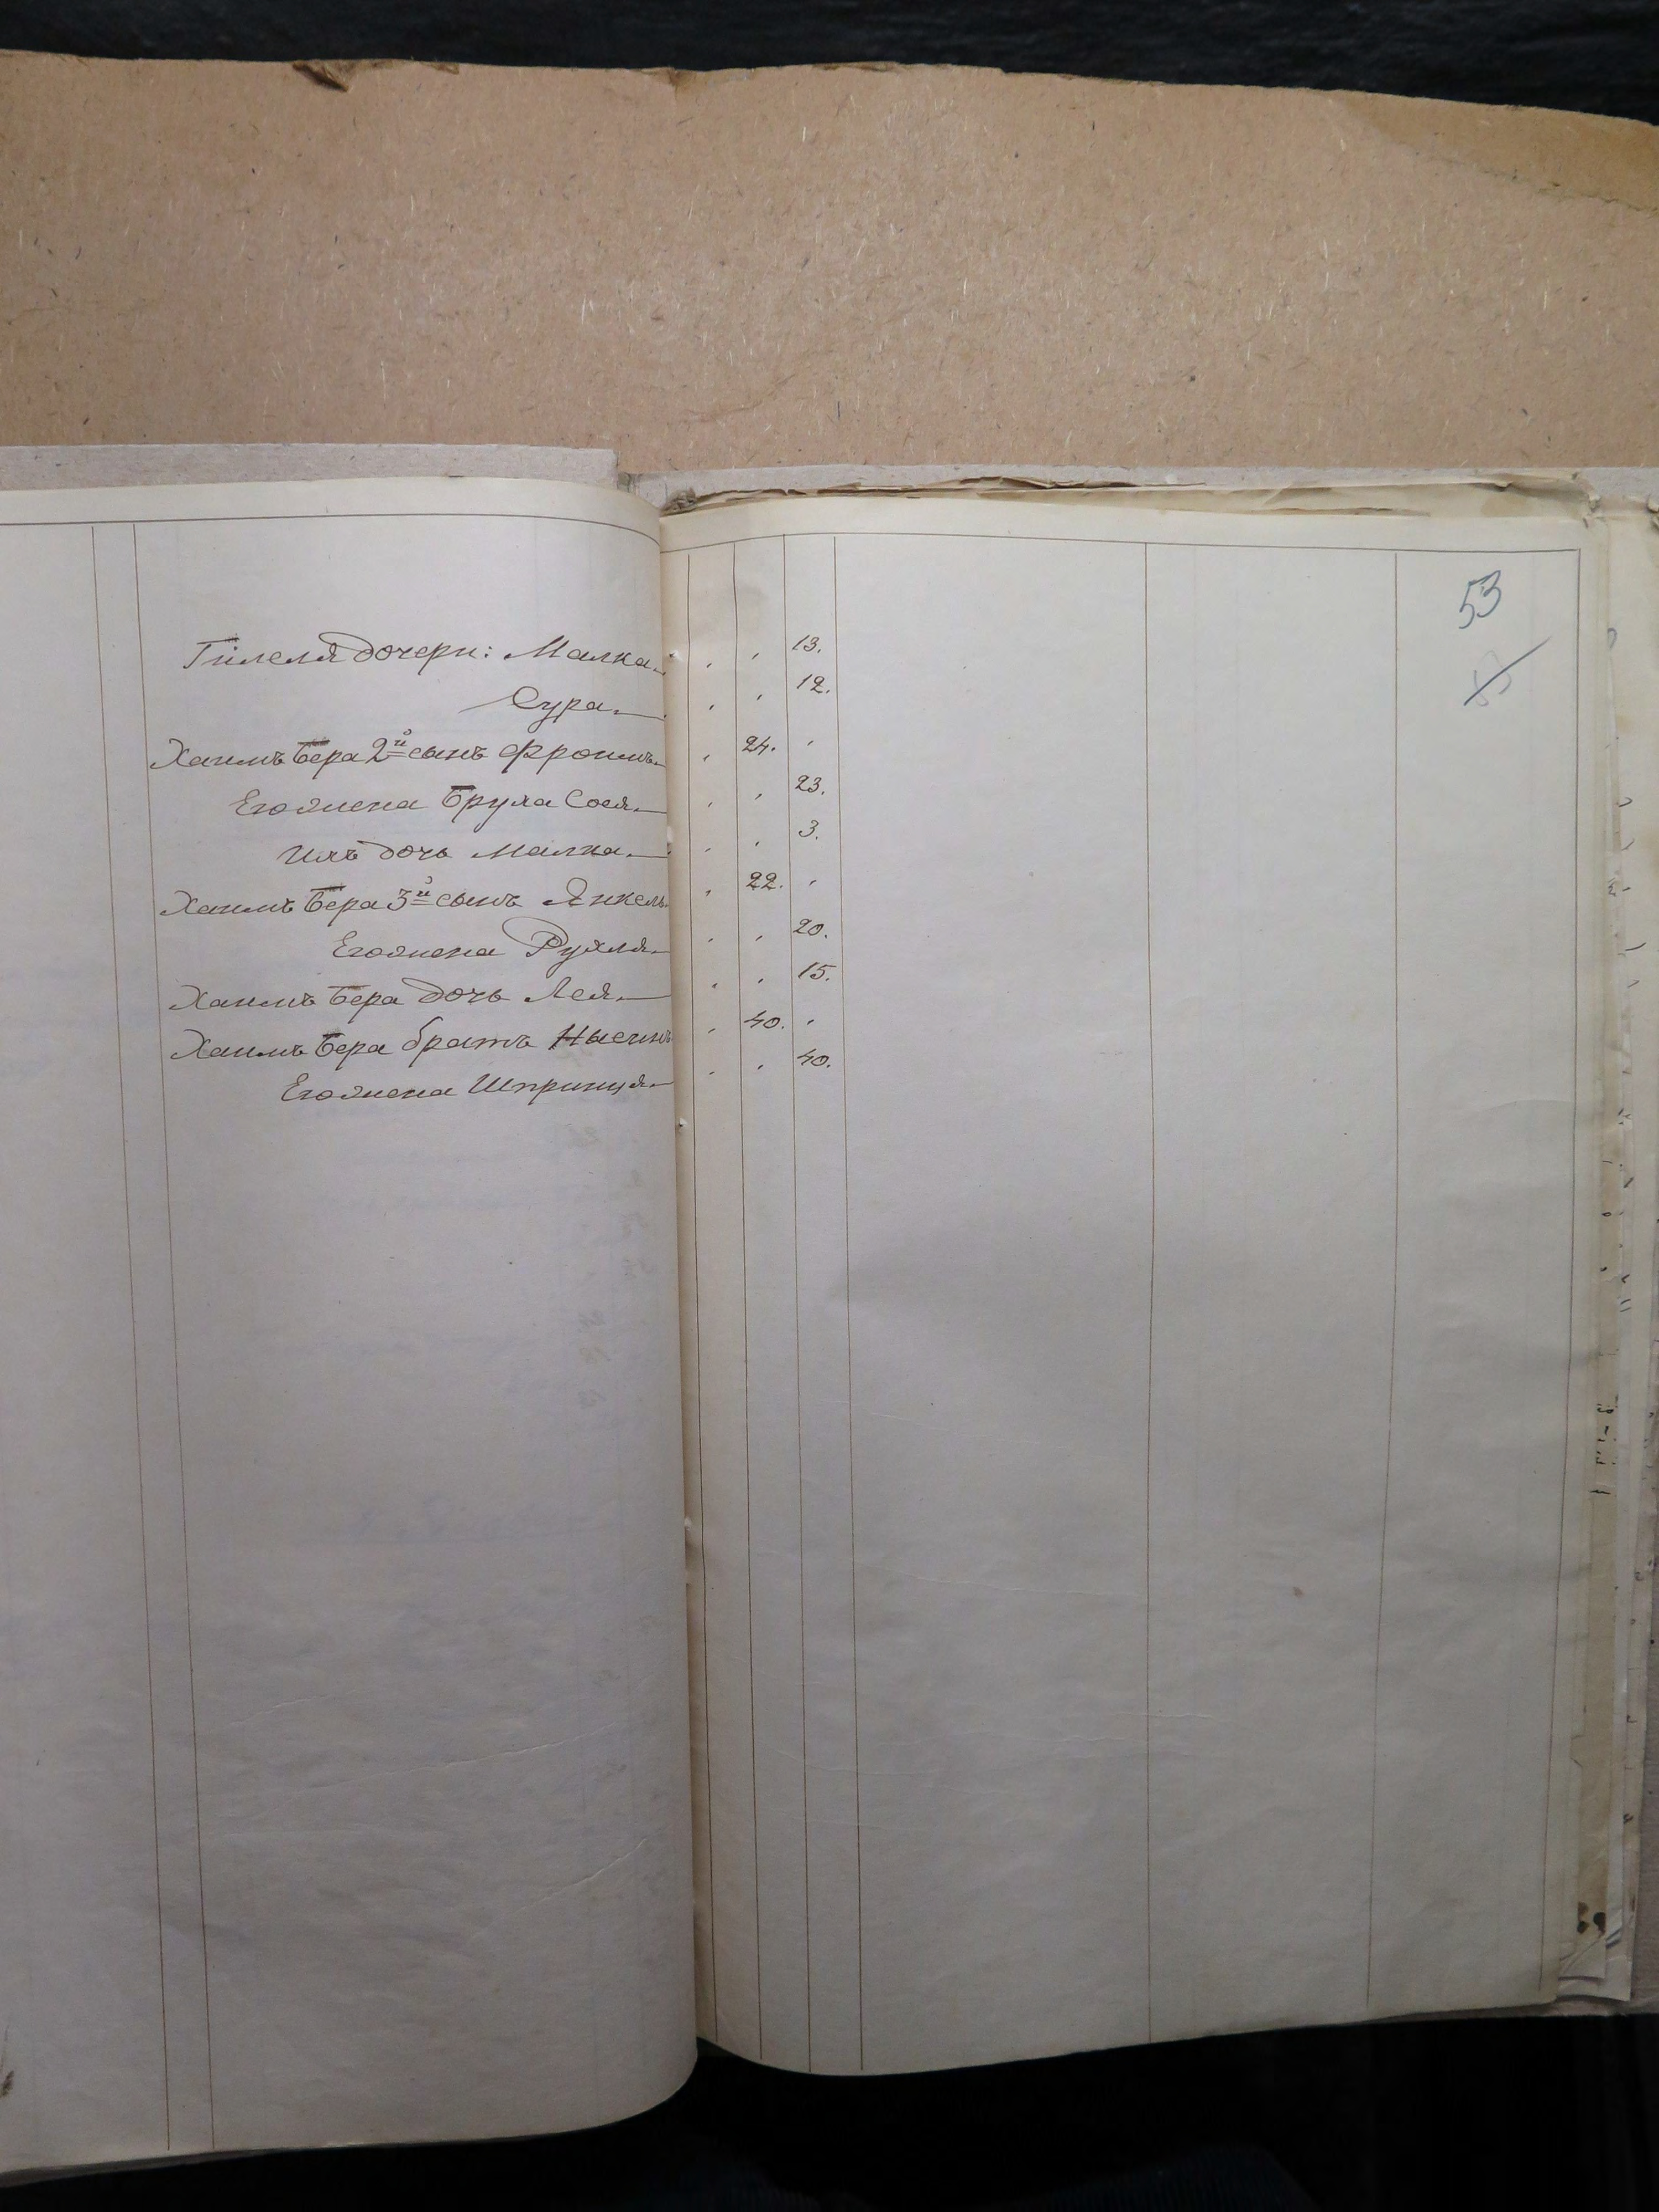 53
Гилеля дочери: Малка " " 13.
Сура " " 12.
Хаимъ Бера 2й сынъ Фроимъ " 24. "
Его жена Бруха Сося " " 23.
Ихъ дочь Малка " " 3.
Хаимъ Бера 3й сынъ Янкель " 22. "
Его жена Рухля " " 20.
Хаимъ Бера дочь Лея " " 15.
Хаимъ Бера братъ Нысинъ " 40. "
Его жена Шпринця " " 40.